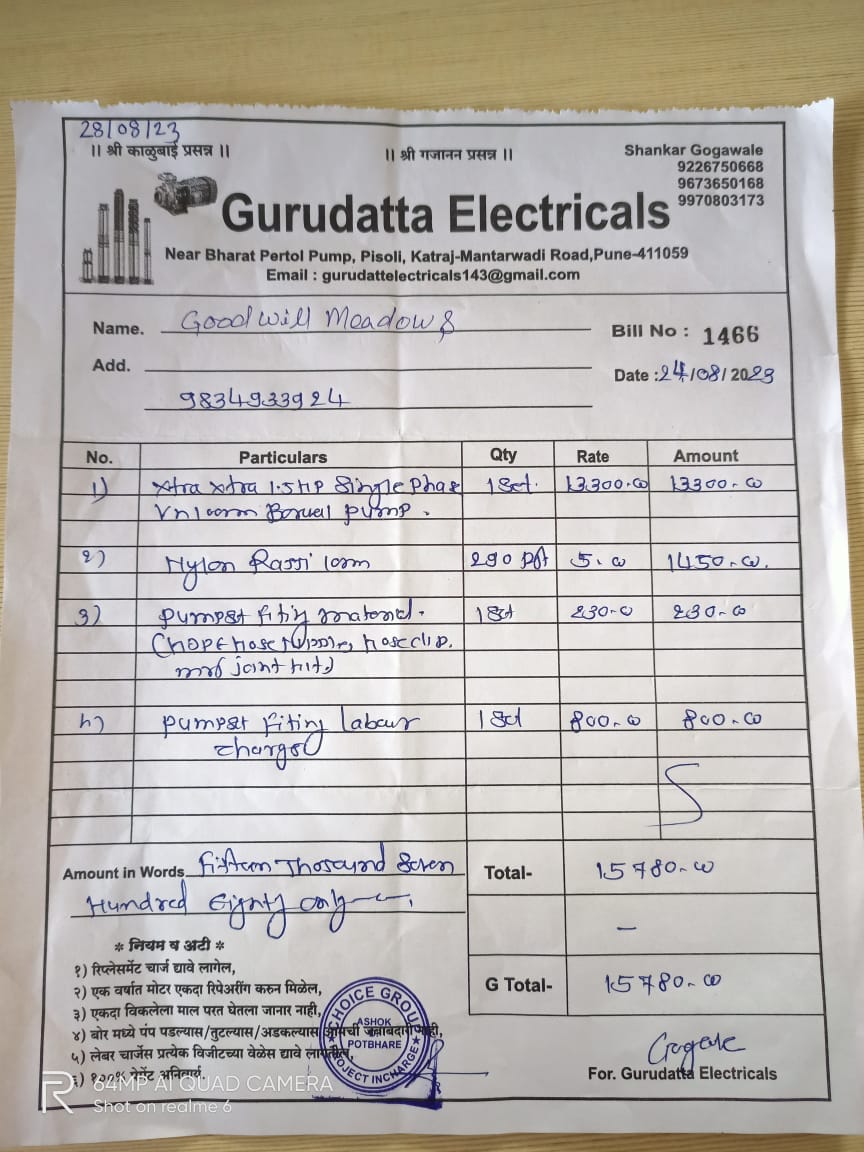 28/08/23
|| श्री काळुबाई प्रसन्न || || श्री गजानन प्रसन्न || Shankar Gogawale
9226750668
9673650168
9970803173
Gurudatta Electricals
Near Bharat Pertol Pump, Pisoli, Katraj-Mantarwadi Road,Pune-411059
Email : gurudattelectricals143@gmail.com
Name. Goodwill Meadows Bill No : 1466
Add. Date :24/08/2023
9834933924
No. Particulars Qty Rate Amount
1) Xtra Xtra 1.5HP Single Phase 1 Set. 13300.00 13300.00
Borwel pump.
२) Nylon Rassi 290 5.00 1450.00
3) Pumpset fiting material. 1 Set 230.00 230.00
hose clip.
joint kit)
४) Pumpset fiting Labour 1 Set 800.00 800.00
charges
Amount in Words. Fifteen Thosound Seven Total- 15780.00
Hundred Eighty only -
* नियम व अटी *
१) रिप्लेसमेंट चार्ज द्यावे लागेल, G Total- 15780.00
२) एक वर्षात मोटर एकदा रिपेअरींग करुन मिळेल,
३) एकदा विकलेला माल परत घेतला जानार नाही,
४) बोर मध्ये पंप पडल्यास/तुटल्यास/अडकल्यास आमची जबाबदारी नाही,
५) लेबर चार्जेस प्रत्येक विजीटच्या वेळेस द्यावे लागतील,
६) १००% पेमेंट अनिवार्य
CHOICE GROUP
ASHOK
POTBHARE
PROJECT INCHARGE
For. Gurudatta Electricals
64MP AI QUAD CAMERA
Shot on realme 6